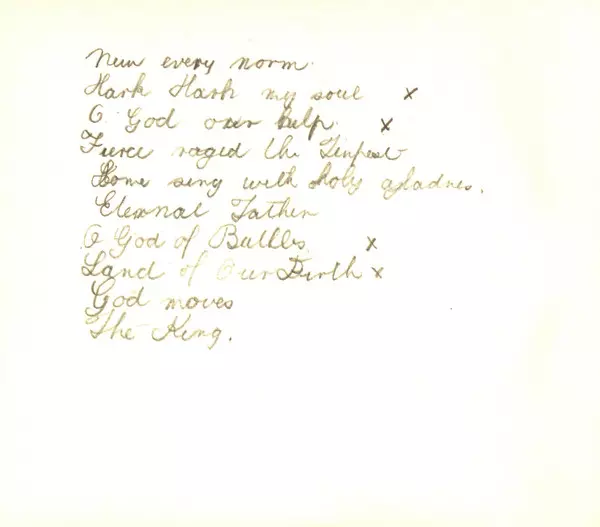 New every norm.
Hark Hark my soul x
O God our help. x
Fierce raged the Tempest
Come sing with holy gladnes.
Eternal Father
O God of Bethle x
Land of Our Birth x
God moves
The King.